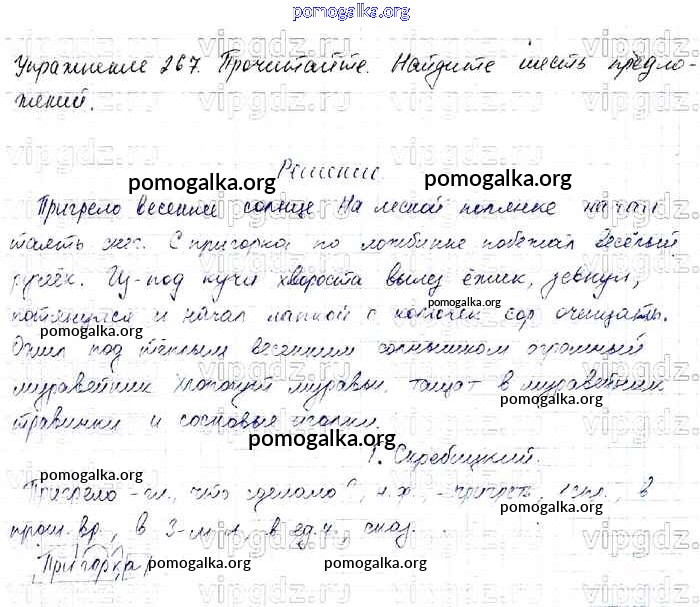 pomogalka.org
Упражнение 267. Прочитайте. Найдите шесть предло-
жений.
Решение.
pomogalka.org pomogalka.org
Пригрело весеннее солнце. На лесной полянке начал
таять снег. С пригорка по ложбинке побежал весёлый
ручеёк. Из-под кучи хвороста вылез ёжик, зевнул,
pomogalka.org
потянулся и начал лапкой с колючек сор очищать.
pomogalka.org
Ожил под тёплым весенним солнышком огромный
муравейник. Хлопочут муравьи, тащат в муравейник
pomogalka.org
травинки и сосновые иголки.
pomogalka.org
Г. Скребицкий.
pomogalka.org
Пригрело - гл., что сделало?, н.ф. - пригреть, I спр., в
pomogalka.org
прош. вр., в ед.ч., сказ.
Пригорка
pomogalka.org
vipgdz.ru